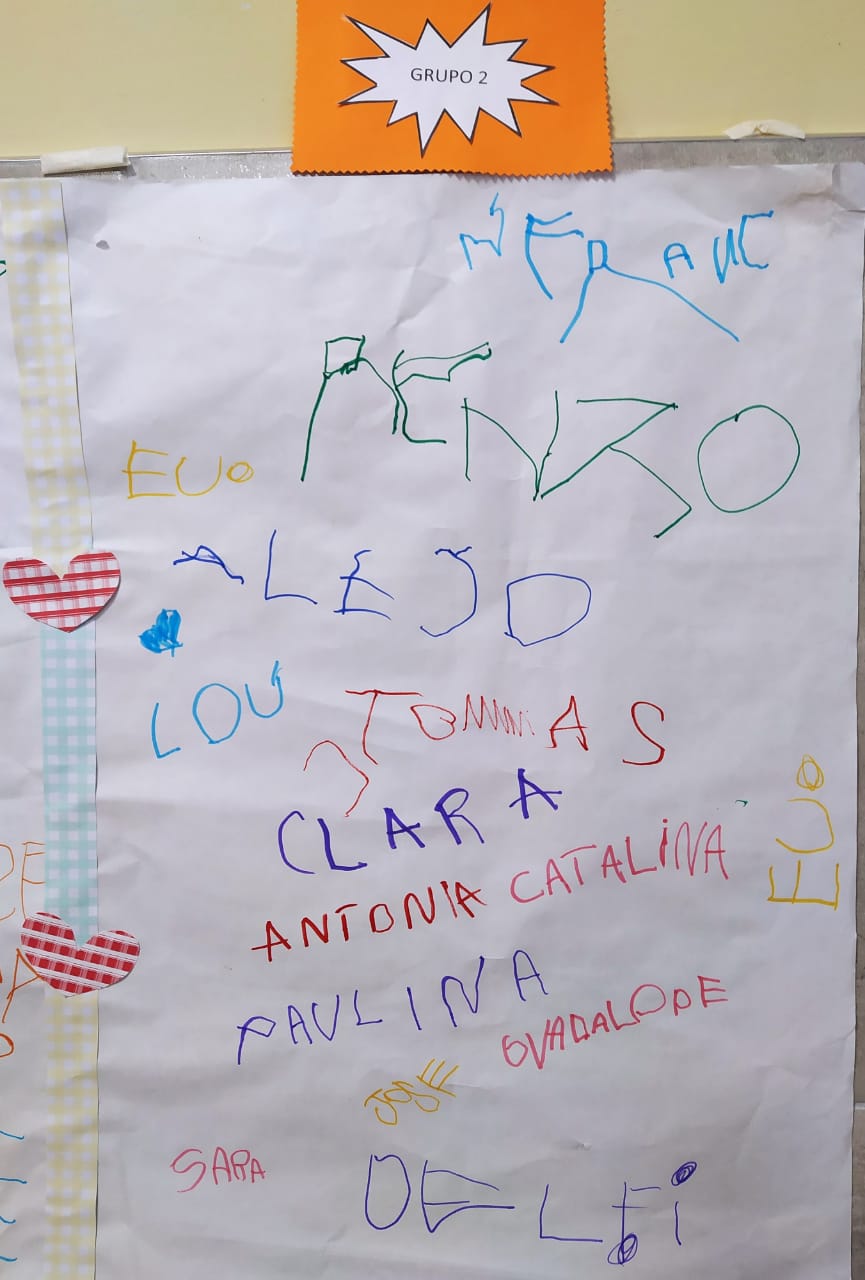 GRUPO 2
RENZO
EUO
ALEJO
LOÚ
TOMMAS
CLARA
EUO
ANTONIA CATALINA
PAULINA
GUADALOPE
JOSE
SARA
DELFi